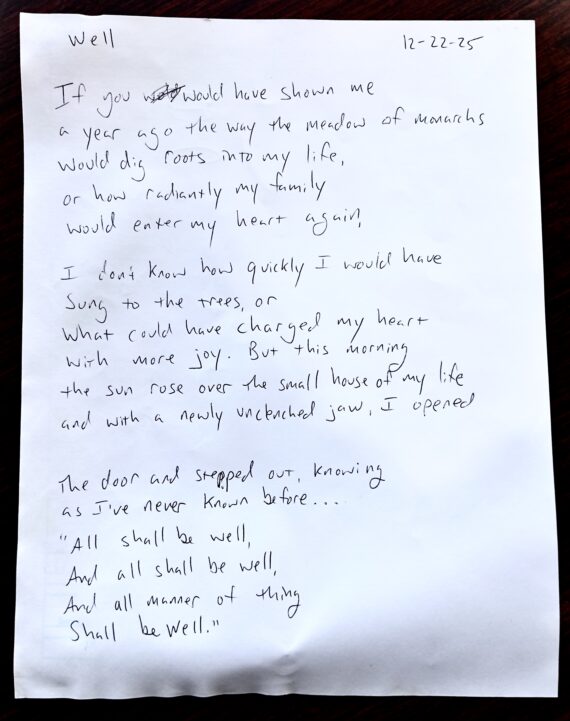 Well
12-22-25
If you would have shown me
a year ago the way the meadow of monarchs
would dig roots into my life,
or how radiantly my family
would enter my heart again,
I don't know how quickly I would have
Sung to the trees, or
What could have charged my heart
with more joy. But this morning
the sun rose over the small house of my life
and with a newly unclenched jaw, I opened
The door and stepped out, knowing
as I've never known before....
"All shall be well,
And all shall be well,
And all manner of thing
Shall be well."